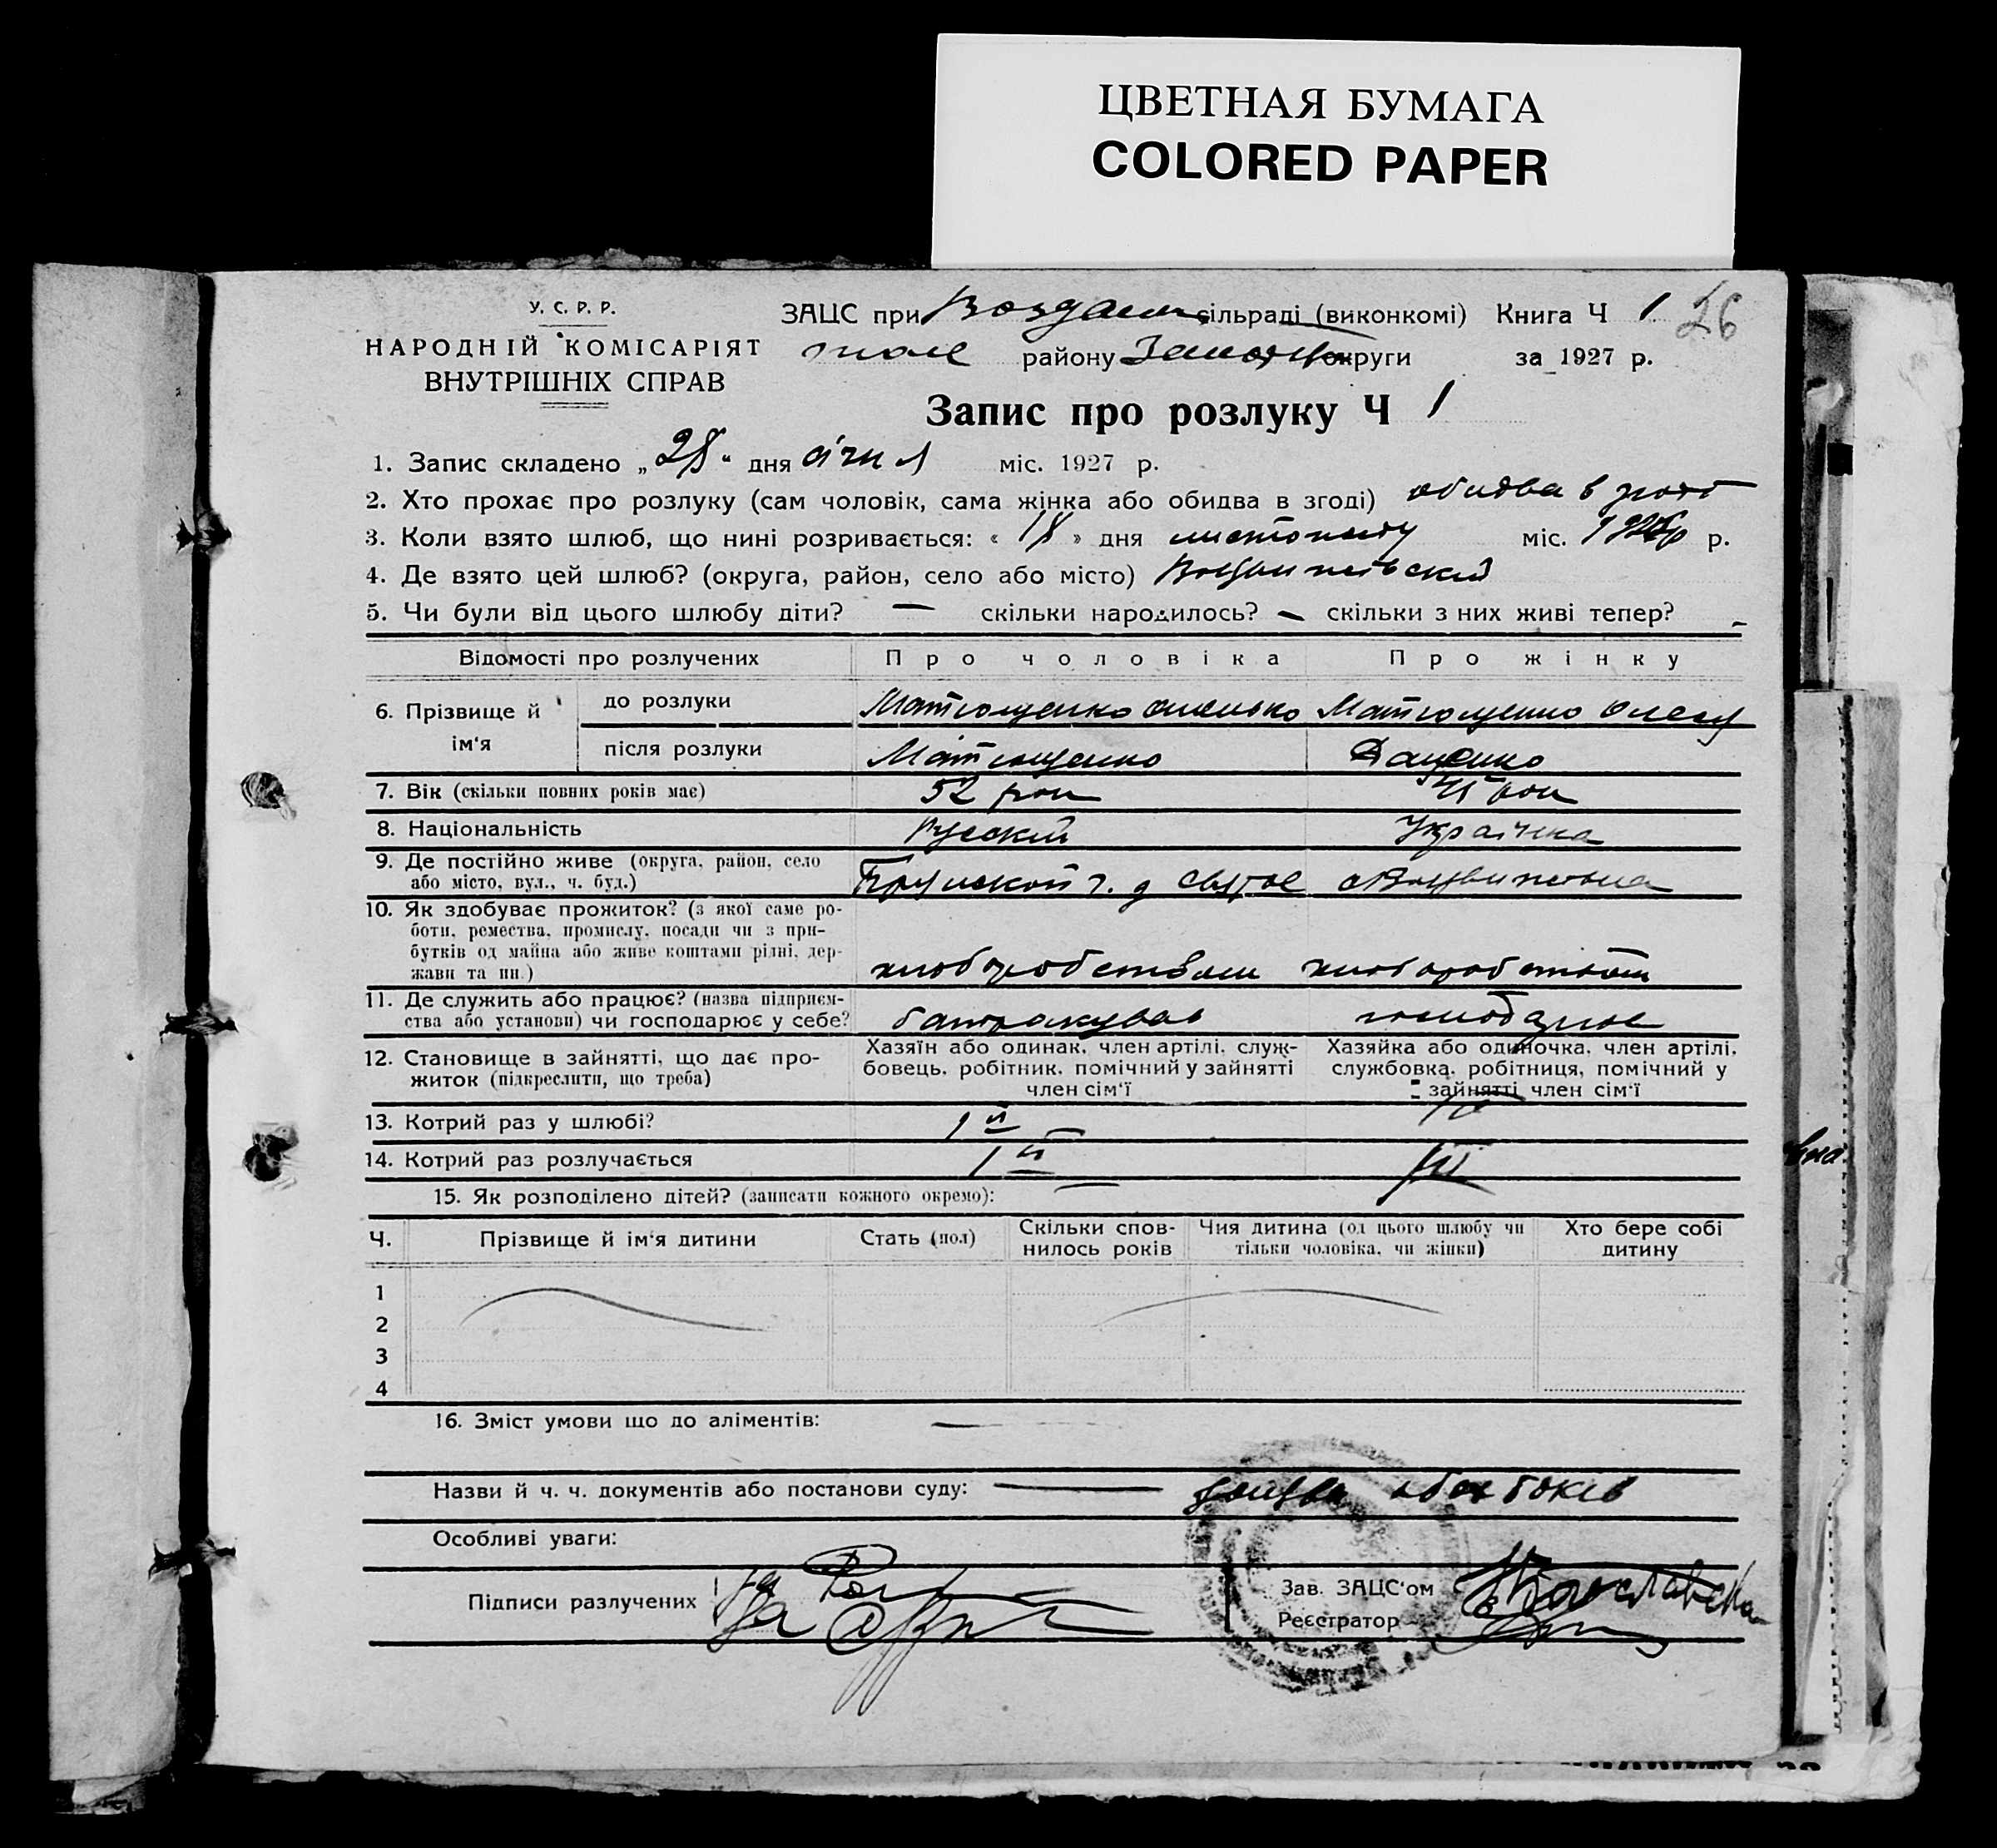 ЦВЕТНАЯ БУМАГА
COLORED PAPER
У. С. Р. Р.
НАРОДНІЙ КОМІСАРІЯТ
ВНУТРІШНІХ СПРАВ
ЗАЦС при сільраді (виконкомі) Книга Ч 1 26
району округи за 1927 р.
Запис про розлуку Ч 1
1. Запис складено „28“ дня січня міс. 1927 р.
2. Хто прохає про розлуку (сам чоловік, сама жінка або обидва в згоді) обидва в
3. Коли взято шлюб, що нині розривається: « 18 » дня листопаду міс. 1926 р.
4. Де взято цей шлюб? (округа, район, село або місто)
5. Чи були від цього шлюбу діти? — скільки народилось? — скільки з них живі тепер? –
Відомості про розлучених Про чоловіка Про жінку
6. Прізвище й ім‘я
до розлуки Матющенко Матющенко
після розлуки Матющенко Даценко
7. Вік (скільки повних років має) 52 рок
8. Національність Руский Украінка
9. Де постійно живе (округа, район, село
або місто, вул., ч. буд.)
10. Як здобуває прожиток? (з якої саме ро-
боти, ремества, промислу, посади чи з при-
бутків од майна або живе коштами рідні, дер-
жави та ин.) хлоборобством хлоборобством
11. Де служить або працює? (назва підприєм-
ства або установи) чи господарює у себе? батракував
12. Становище в зайнятті, що дає про-
житок (підкреслити, що треба)
Хазяїн або одинак, член артілі, служ-
бовець, робітник, помічний у зайнятті
член сім‘ї
Хазяйка або одиночка, член артілі,
службовка, робітниця, помічний у
зайнятті член сім‘ї
13. Котрий раз у шлюбі? 1й
14. Котрий раз розлучається 1й
15. Як розподілено дітей? (записати кожного окремо): —
Ч. Прізвище й ім‘я дитини Стать (пол) Скільки спов-
нилось років Чия дитина (од цього шлюбу чи
тільки чоловіка, чи жінки) Хто бере собі
дитину
1
2
3
4
16. Зміст умови що до аліментів: —
Назви й ч. ч. документів або постанови суду: —
Особливі уваги:
Підписи разлучених
Зав. ЗАЦС‘ом
Реєстратор